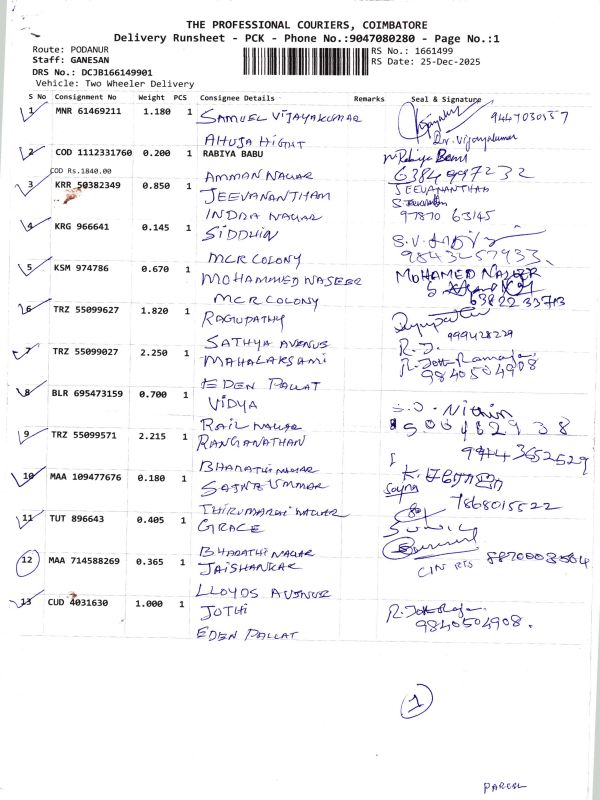 THE PROFESSIONAL COURIERS, COIMBATORE
Delivery Runsheet - PCK - Phone No.:9047080280 - Page No.:1
Route: PODANUR
Staff: GANESAN
DRS No.: DCJB166149901
Vehicle: Two Wheeler Delivery
RS No.: 1661499
RS Date: 25-Dec-2025
S No Consignment No Weight PCS Consignee Details Remarks Seal & Signature
1 MNR 61469211 1.180 1 SAMUEL VIJAYAKUMAR 9447030157
Dr. Vijayakumar
AHUJA HIGHT
2 COD 1112331760 0.200 1 RABIYA BABU
COD Rs.1840.00
AMMAN NAGAR 6384997232
3 KRR 50382349 0.850 1 JEEVANANTHAM JEEVANANTHAM
INDRA NAGAR 97870 63145
4 KRG 966641 0.145 1 SIDDHIN
MCR COLONY 9843257933
5 KSM 974786 0.670 1 MOHAMMED NASEER MOHAMED NASEER
MCR COLONY
6 TRZ 55099627 1.820 1 RAGUPATHY
SATHYA AVENUE
7 TRZ 55099027 2.250 1 MAHALAKSAMI
9840504908
EDEN PALLAT
8 BLR 695473159 0.700 1 VIDYA
S.J. Nithin
RAIL NAGAR
9 TRZ 55099571 2.215 1 RANGANATHAN
BHARATHI NAGAR
10 MAA 109477676 0.180 1
7868015522
THIRUMARAI NAGAR
11 TUT 896643 0.405 1 GRACE
BHARATHI NAGAR
12 MAA 714588269 0.365 1 JAISHANKAR
CIN RTS
LLOYDS AVENUE
13 CUD 4031630 1.000 1 JOTHI
9840504908.
EDEN PALLAT
1
PARCEL